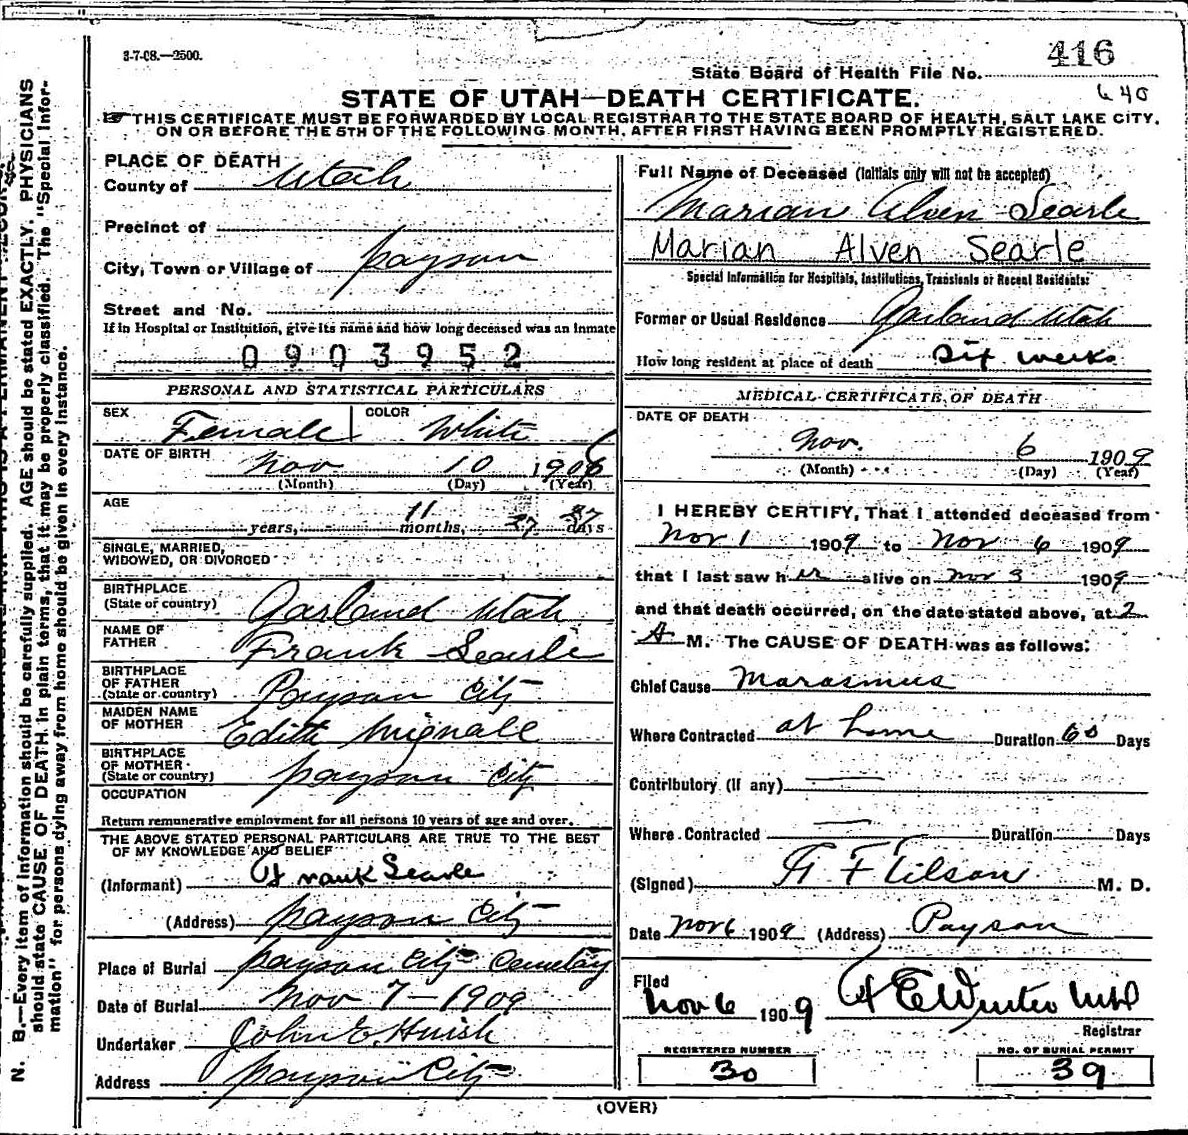 3-7-08.—2500.
416
State Board of Health File No.
640
STATE OF UTAH—DEATH CERTIFICATE.
THIS CERTIFICATE MUST BE FORWARDED BY LOCAL REGISTRAR TO THE STATE BOARD OF HEALTH, SALT LAKE CITY,
ON OR BEFORE THE 5TH OF THE FOLLOWING MONTH, AFTER FIRST HAVING BEEN PROMPTLY REGISTERED.
PLACE OF DEATH
County of Utah
Precinct of
City, Town or Village of Payson
Street and No.
If in Hospital or Institution, give its name and how long deceased was an inmate
0903952
PERSONAL AND STATISTICAL PARTICULARS
SEX Female COLOR White
DATE OF BIRTH Nov 10 1908
(Month) (Day) (Year)
AGE
years, 11 months, 27 27 days
SINGLE, MARRIED,
WIDOWED, OR DIVORCED
BIRTHPLACE
(State or country) Garland Utah
NAME OF
FATHER Frank Searle
BIRTHPLACE
OF FATHER
(State or country) Payson City
MAIDEN NAME
OF MOTHER Edith Wignall
BIRTHPLACE
OF MOTHER
(State or country) Payson City
OCCUPATION
Return remunerative employment for all persons 10 years of age and over.
THE ABOVE STATED PERSONAL PARTICULARS ARE TRUE TO THE BEST
OF MY KNOWLEDGE AND BELIEF
(Informant) Frank Searle
(Address) Payson City
Place of Burial Payson City Cemetary
Date of Burial Nov 7 - 1909
Undertaker John E. Huish
Address Payson City
Full Name of Deceased (Initials only will not be accepted)
Marian Alven Searle
Marian Alven Searle
Special Information for Hospitals, Institutions, Transients or Recent Residents:
Former or Usual Residence Garland Utah
How long resident at place of death Six weeks
MEDICAL CERTIFICATE OF DEATH
DATE OF DEATH
Nov. 6 1909
(Month) (Day) (Year)
I HEREBY CERTIFY, That I attended deceased from
Nov 1 1909 to Nov 6 1909
that I last saw her alive on Nov 3 1909
and that death occurred, on the date stated above, at 2
A M. The CAUSE OF DEATH was as follows:
Chief Cause Marasmus
Where Contracted at home Duration 60 Days
Contributory (if any)
Where Contracted Duration Days
(Signed) Tilson M. D.
Date Nov 6 1909 (Address) Payson
Filed
Nov 6 1909 Winter MD
Registrar
REGISTERED NUMBER NO. OF BURIAL PERMIT
30 39
(OVER)
N. B.—Every item of information should be carefully supplied. AGE should be stated EXACTLY. PHYSICIANS
should state CAUSE OF DEATH in plain terms, that it may be properly classified. The "Special Infor-
mation" for persons dying away from home should be given in every instance.